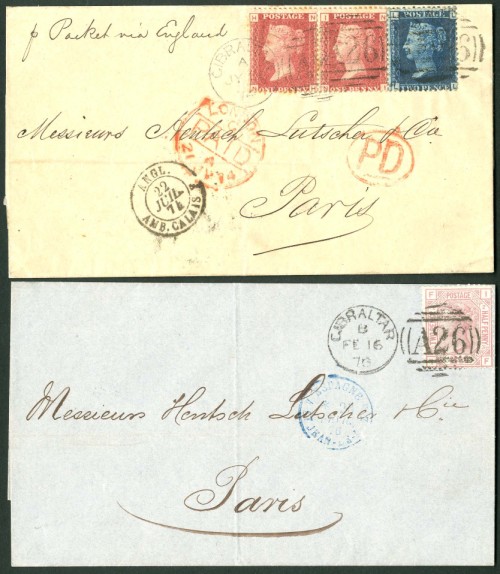 p Packet via England
POSTAGE POSTAGE POSTAGE
ONE PENNY ONE PENNY TWO PENCE
GIBRALTAR
A
A26
LONDON
PAID
74
PD
Messieurs Hentsch Lutscher & Co.
ANGL.
22
JUIL
74
AMB. CALAIS
Paris
POSTAGE
HALF PENNY
F I
F
GIBRALTAR
B
FE 16
76
A26
Messieurs Hentsch Lutscher & Cie
Paris